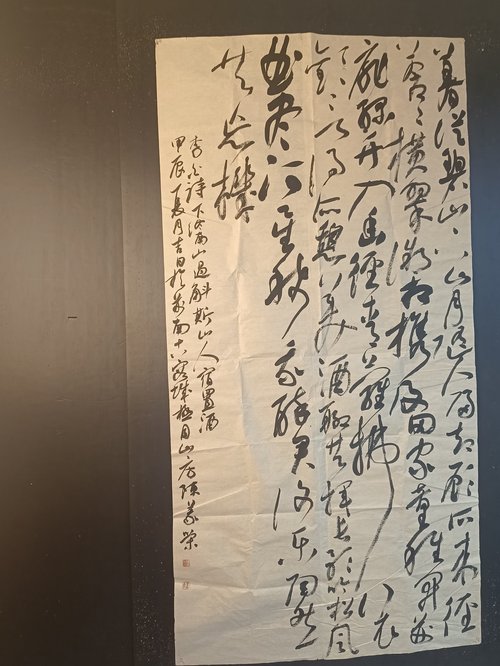 暮從碧山下山月隨人歸却顧所來徑
蒼々橫翠微相攜及田家童稚開荊
扉綠竹入幽徑青蘿拂行衣
歡言得所憩美酒聊共揮長歌吟松風
曲盡河星稀我醉君復樂陶然
共忘機
李白詩下終南山過斛斯山人宿置酒
甲辰夏月吉日於城極目山房陳義榮